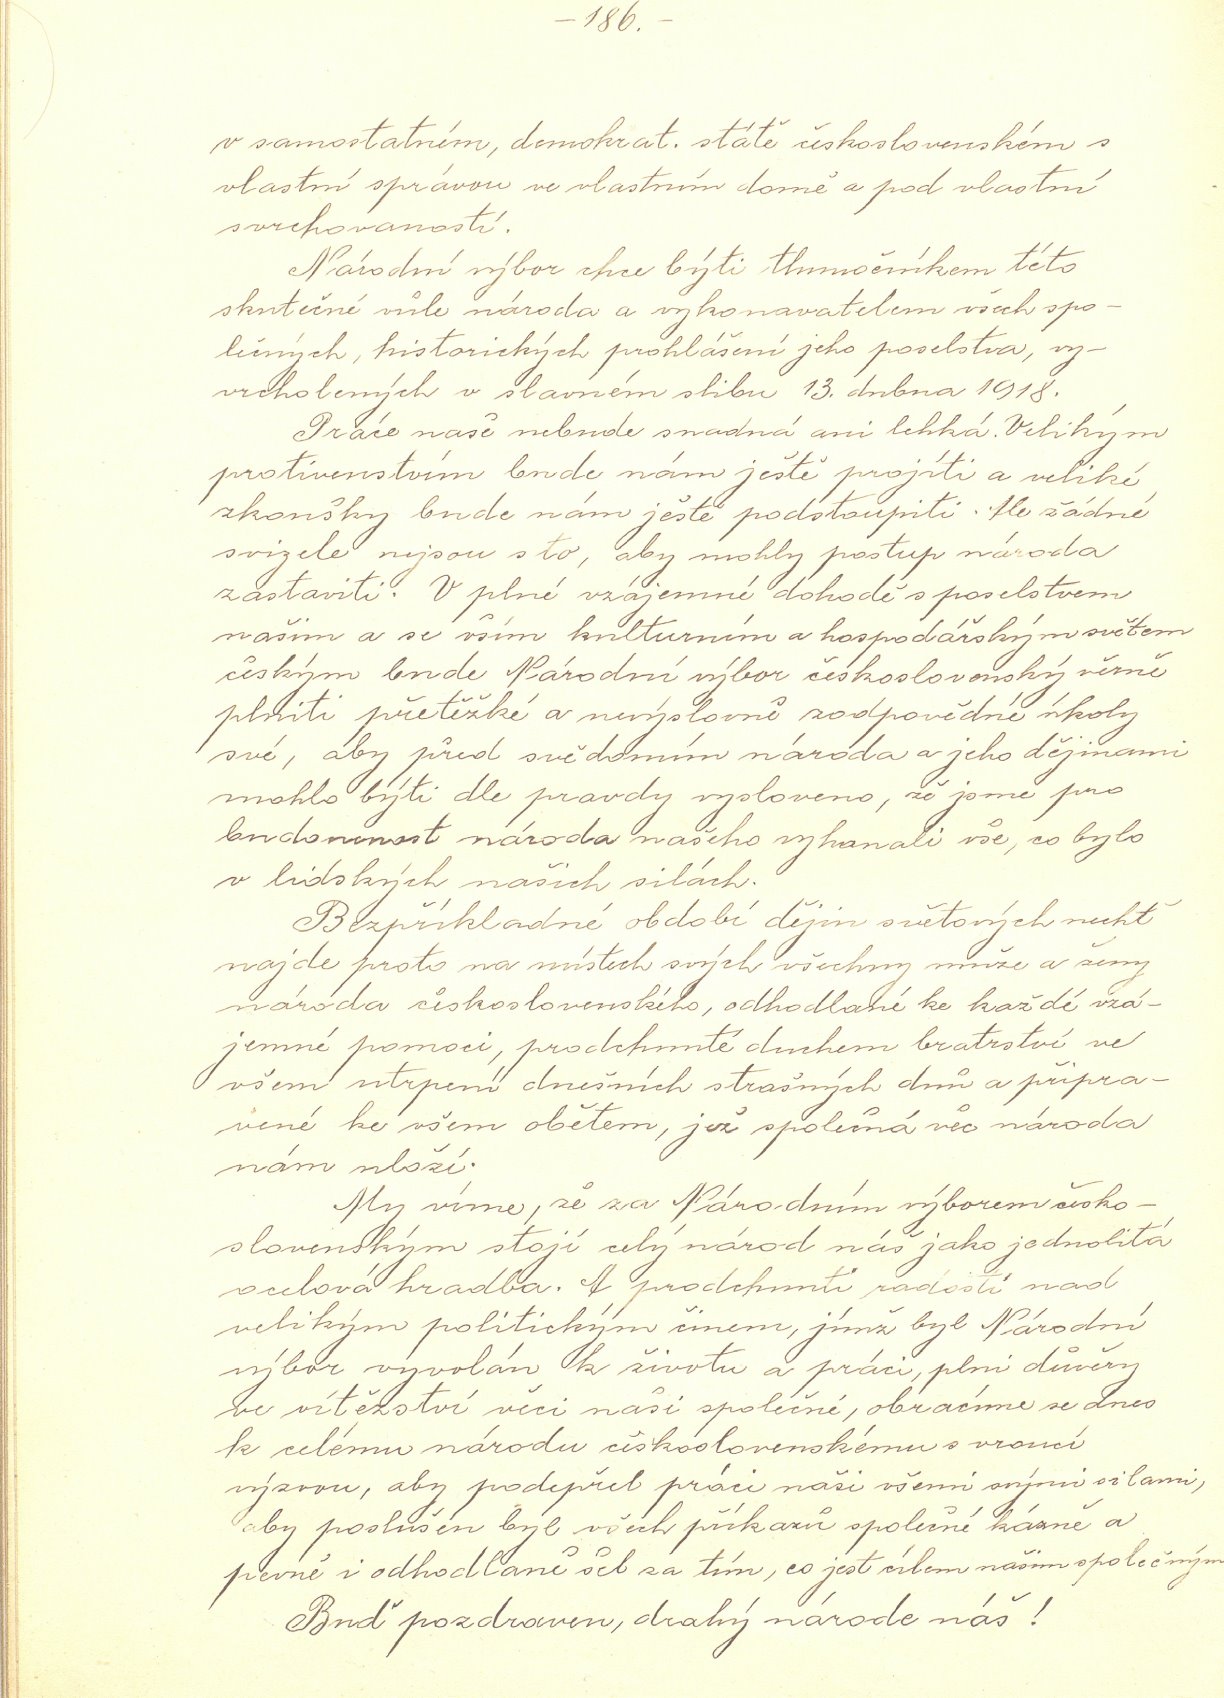 – 186. –
v samostatném, demokrat. státě československém s
vlastní správou ve vlastním domě a pod vlastní
svrchovaností.
Národní výbor chce býti tlumočníkem této
skutečné vůle národa a vykonavatelem všech spo-
lečných, historických prohlášení jeho poselstva, vy-
vrcholených v slavném slibu 13. dubna 1918.
Práce naše nebude snadná ani lehká. Velikým
protivenstvím bude nám ještě projíti a veliké
zkoušky bude nám ještě podstoupiti. Ale žádné
svízele nejsou s to, aby mohly postup národa
zastaviti. V plné vzájemné dohodě s poselstvem
naším a se vším kulturním a hospodářským světem
českým bude Národní výbor československý věrně
plniti přetěžké a nevýslovně zodpovědné úkoly
své, aby před svědomím národa a jeho dějinami
mohlo býti dle pravdy vysloveno, že jsme pro
budoucnost národa našeho vykonali vše, co bylo
v lidských našich silách.
Bezpříkladné období dějin světových nechť
najde proto na místech svých všechny muže a ženy
národa československého, odhodlané ke každé vzá-
jemné pomoci, prodchnuté duchem bratrství ve
všem utrpení dnešních strašných dnů a připra-
vené ke všem obětem, jež společná věc národa
nám uloží.
My víme, že za Národním výborem česko-
slovenským stojí celý národ náš jako jednolitá
ocelová hradba. A prodchnuti radostí nad
velikým politickým činem, jímž byl Národní
výbor vyvolán k životu a práci, plni důvěry
ve vítězství věci naší společné, obracíme se dnes
k celému národu československému s vroucí
výzvou, aby podepřel práci naši všemi svými silami,
aby poslušen byl všech příkazů společné kázně a
pevně i odhodlaně šel za tím, co jest cílem naším společným
Buď pozdraven, drahý národe náš!